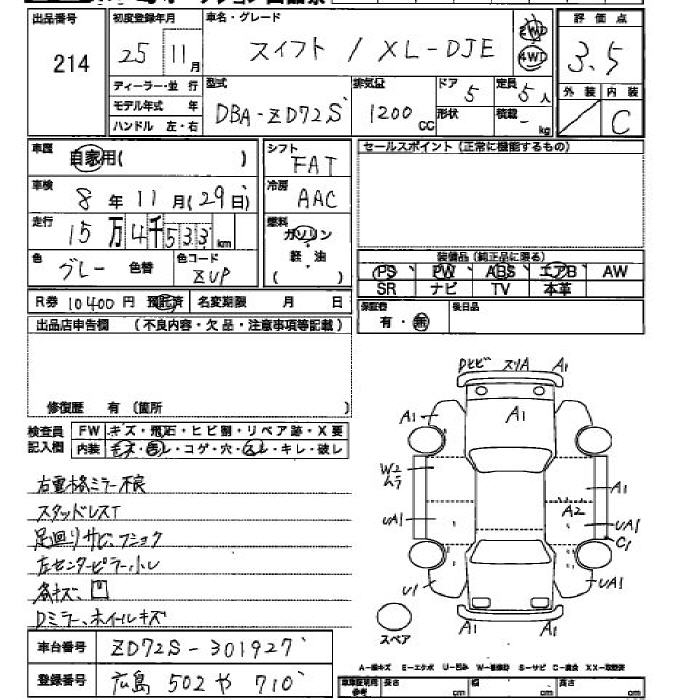 出品番号 初度登録年月 車名・グレード 評価点
214 25 11月 スイフト / XL-DJE 2WD 4WD 3.5
ディーラー・並行 型式 排気量 ドア 定員 外装 内装
DBA-ZD72S 1200 CC 5 5人
モデル年式 年 形状 積載 - kg C
ハンドル 左・右
車歴 自家用( ) シフト FAT セールスポイント (正常に機能するもの)
車検 8年11月(29日) 冷房 AAC
走行 15万4千533km 燃料 ガソリン
軽・油
( )
色 グレー 色替 色コード ZVP
装備品(純正品に限る)
PS PW ABS エアB AW
SR ナビ TV 本革
R券 10400円 預託済 名変期限 月 日 保証書 有・無 後日品
出品店申告欄 (不良内容・欠品・注意事項等記載)
修復歴 有 (箇所 )
検査員 FW キズ・飛石・ヒビ割・リペア跡・X要
記入欄 内装 キズ・汚レ・コゲ・穴・スレ・キレ・破レ
右電格ミラー不良
スタッドレスT
足廻りサビ、フショク
左センターピラー小レ
各キズ、凹
Dミラー、ホイルキズ
Dヒビ スリA A1
A1 A1
W2 ムラ A1
A2
UA1 UA1
C1
U1 UA1
A1 A1
スペア
車台番号 ZD72S-301927
登録番号 広島 502 や 710
A-線キズ E-エクボ U-凹み W-補修跡 S-サビ C-腐食 XX-取替済
車庫証明用参考 長さ cm 幅 cm 高さ cm